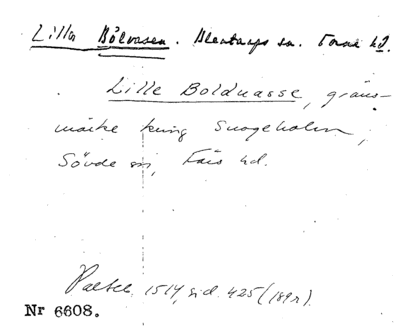 Lilla Bölvasen. Blentarps sn. Torna hd.
Lille Boldnasse, gräns-
märke kring Snogeholm,
Sövde sn, Färs hd.
1514, sid. 425 (189r).
Nr 6608.